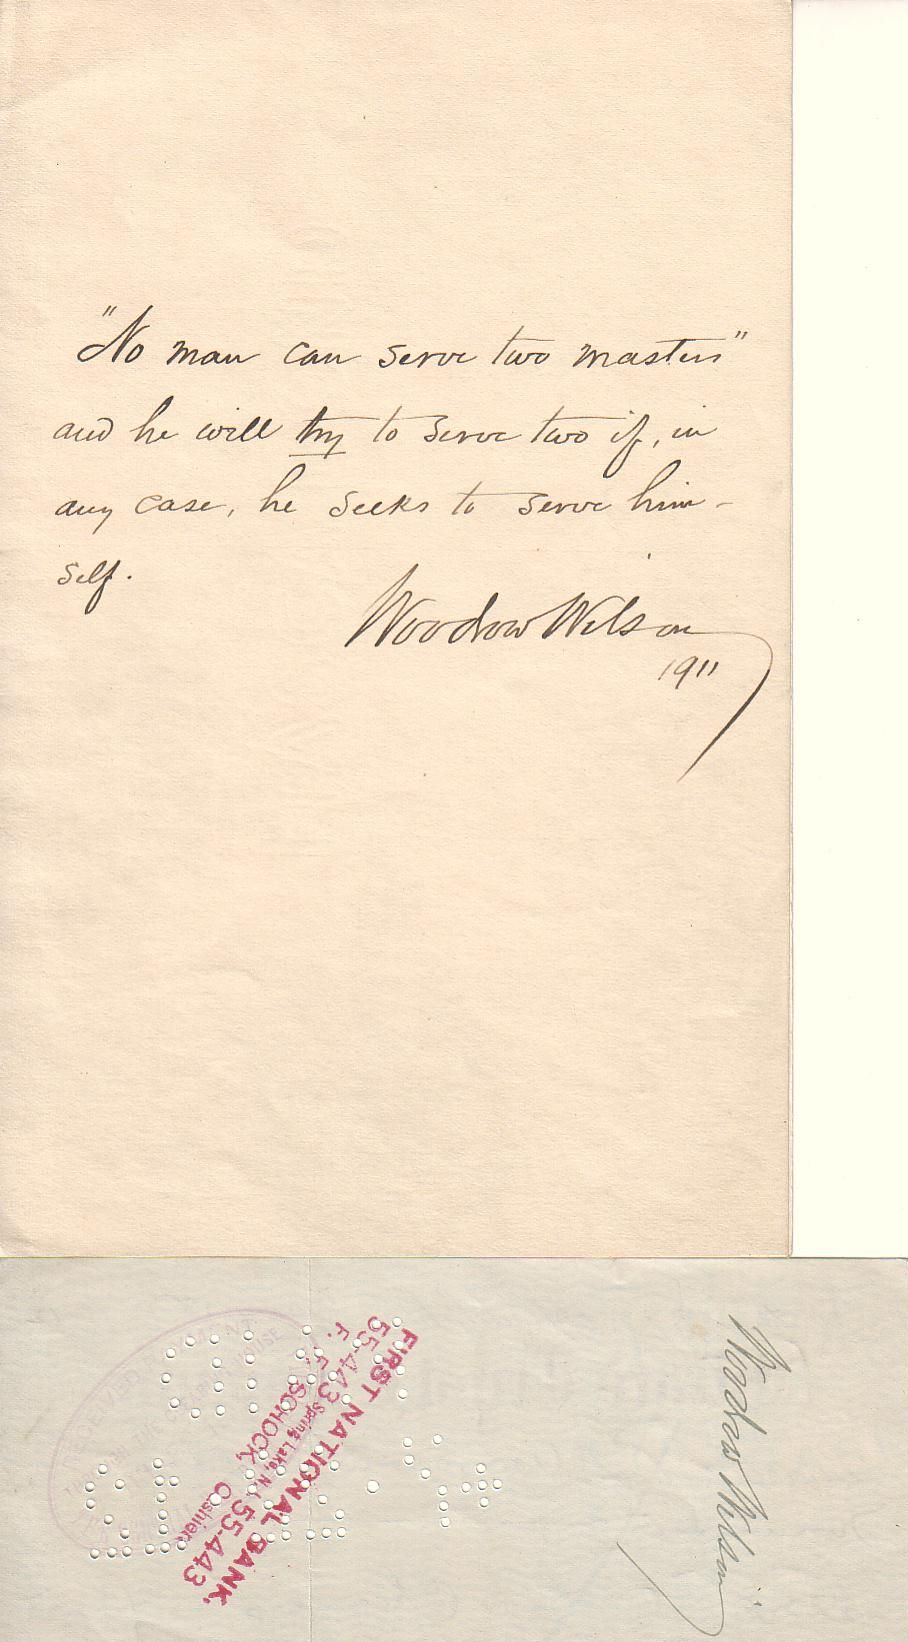 "No man can serve two masters"
and he will try to serve two if, in
any case, he seeks to serve him-
self.
Woodrow Wilson
1911
FIRST NATIONAL BANK,
55-443 Spring Lake, N.J. 55-443
F. F. SCHOCK, Cashier
Woodrow Wilson